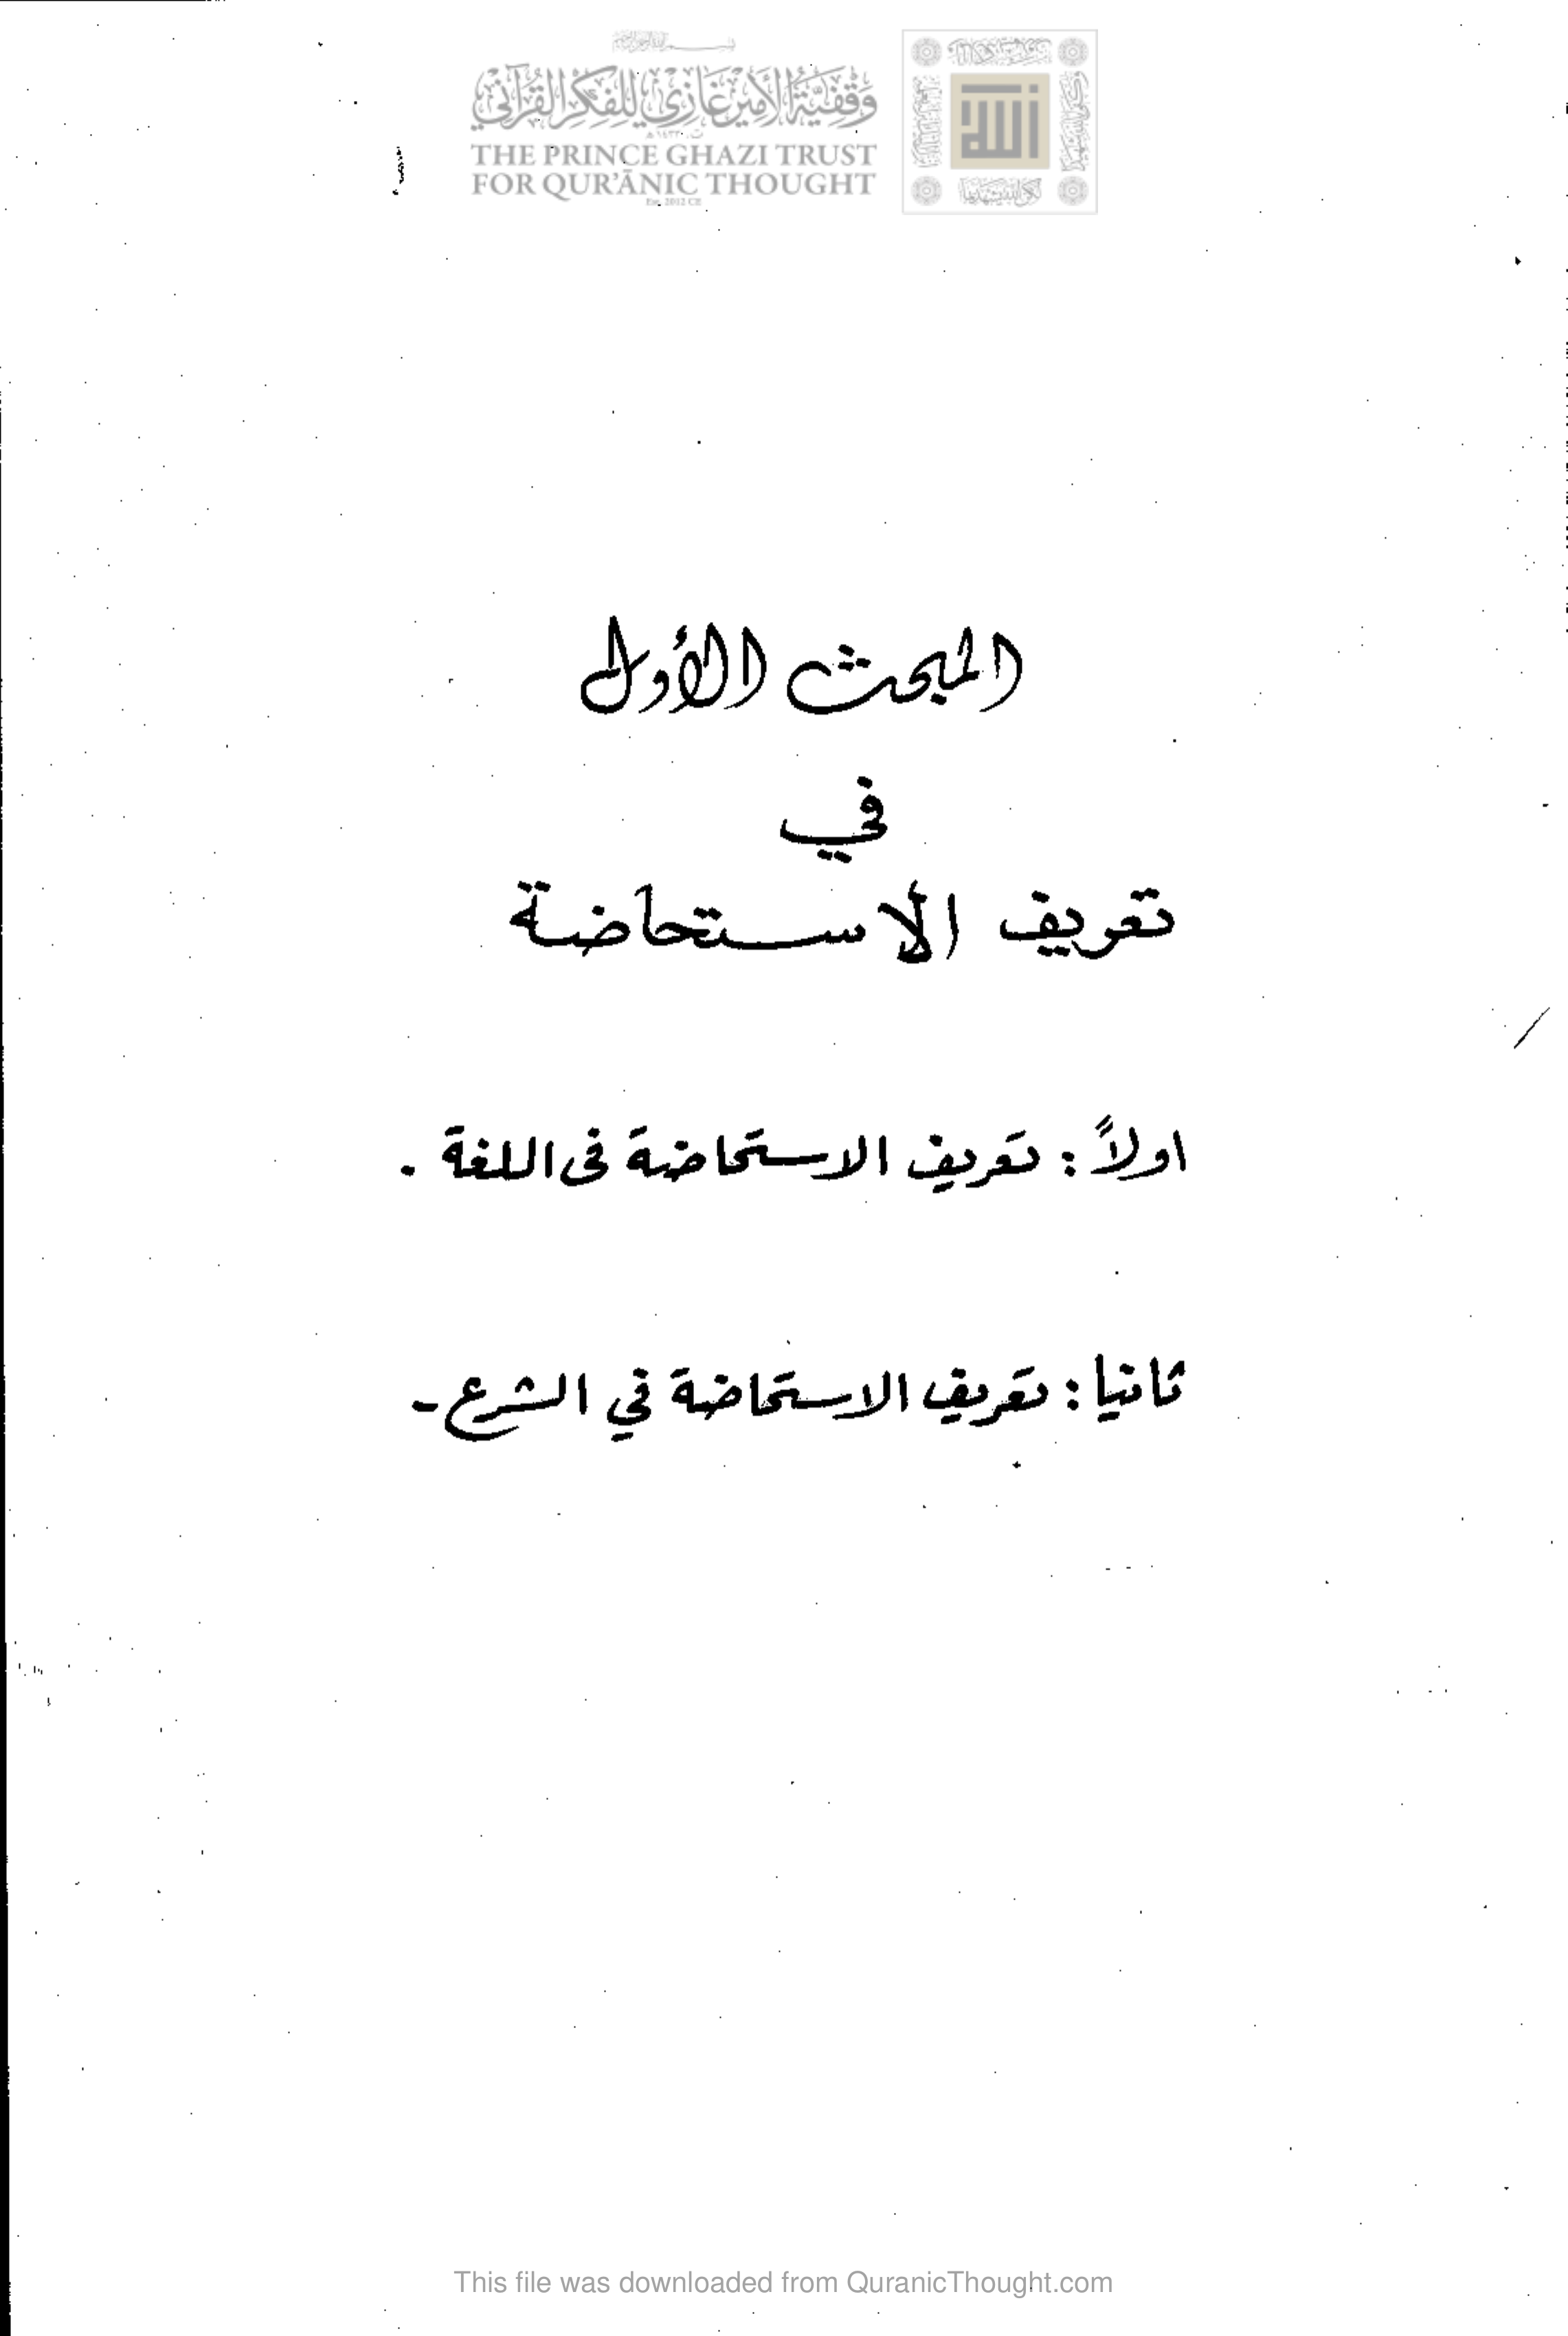 وقفية الأمير غازي للفكر القرآني
THE PRINCE GHAZI TRUST
FOR QUR'ĀNIC THOUGHT
Est. 2012 CE
المبحث الأول
في
تعريف الاستحاضة
اولاً : تعريف الاستحاضة فى اللغة .
ثانيا : تعريف الاستحاضة في الشرع -
This file was downloaded from QuranicThought.com